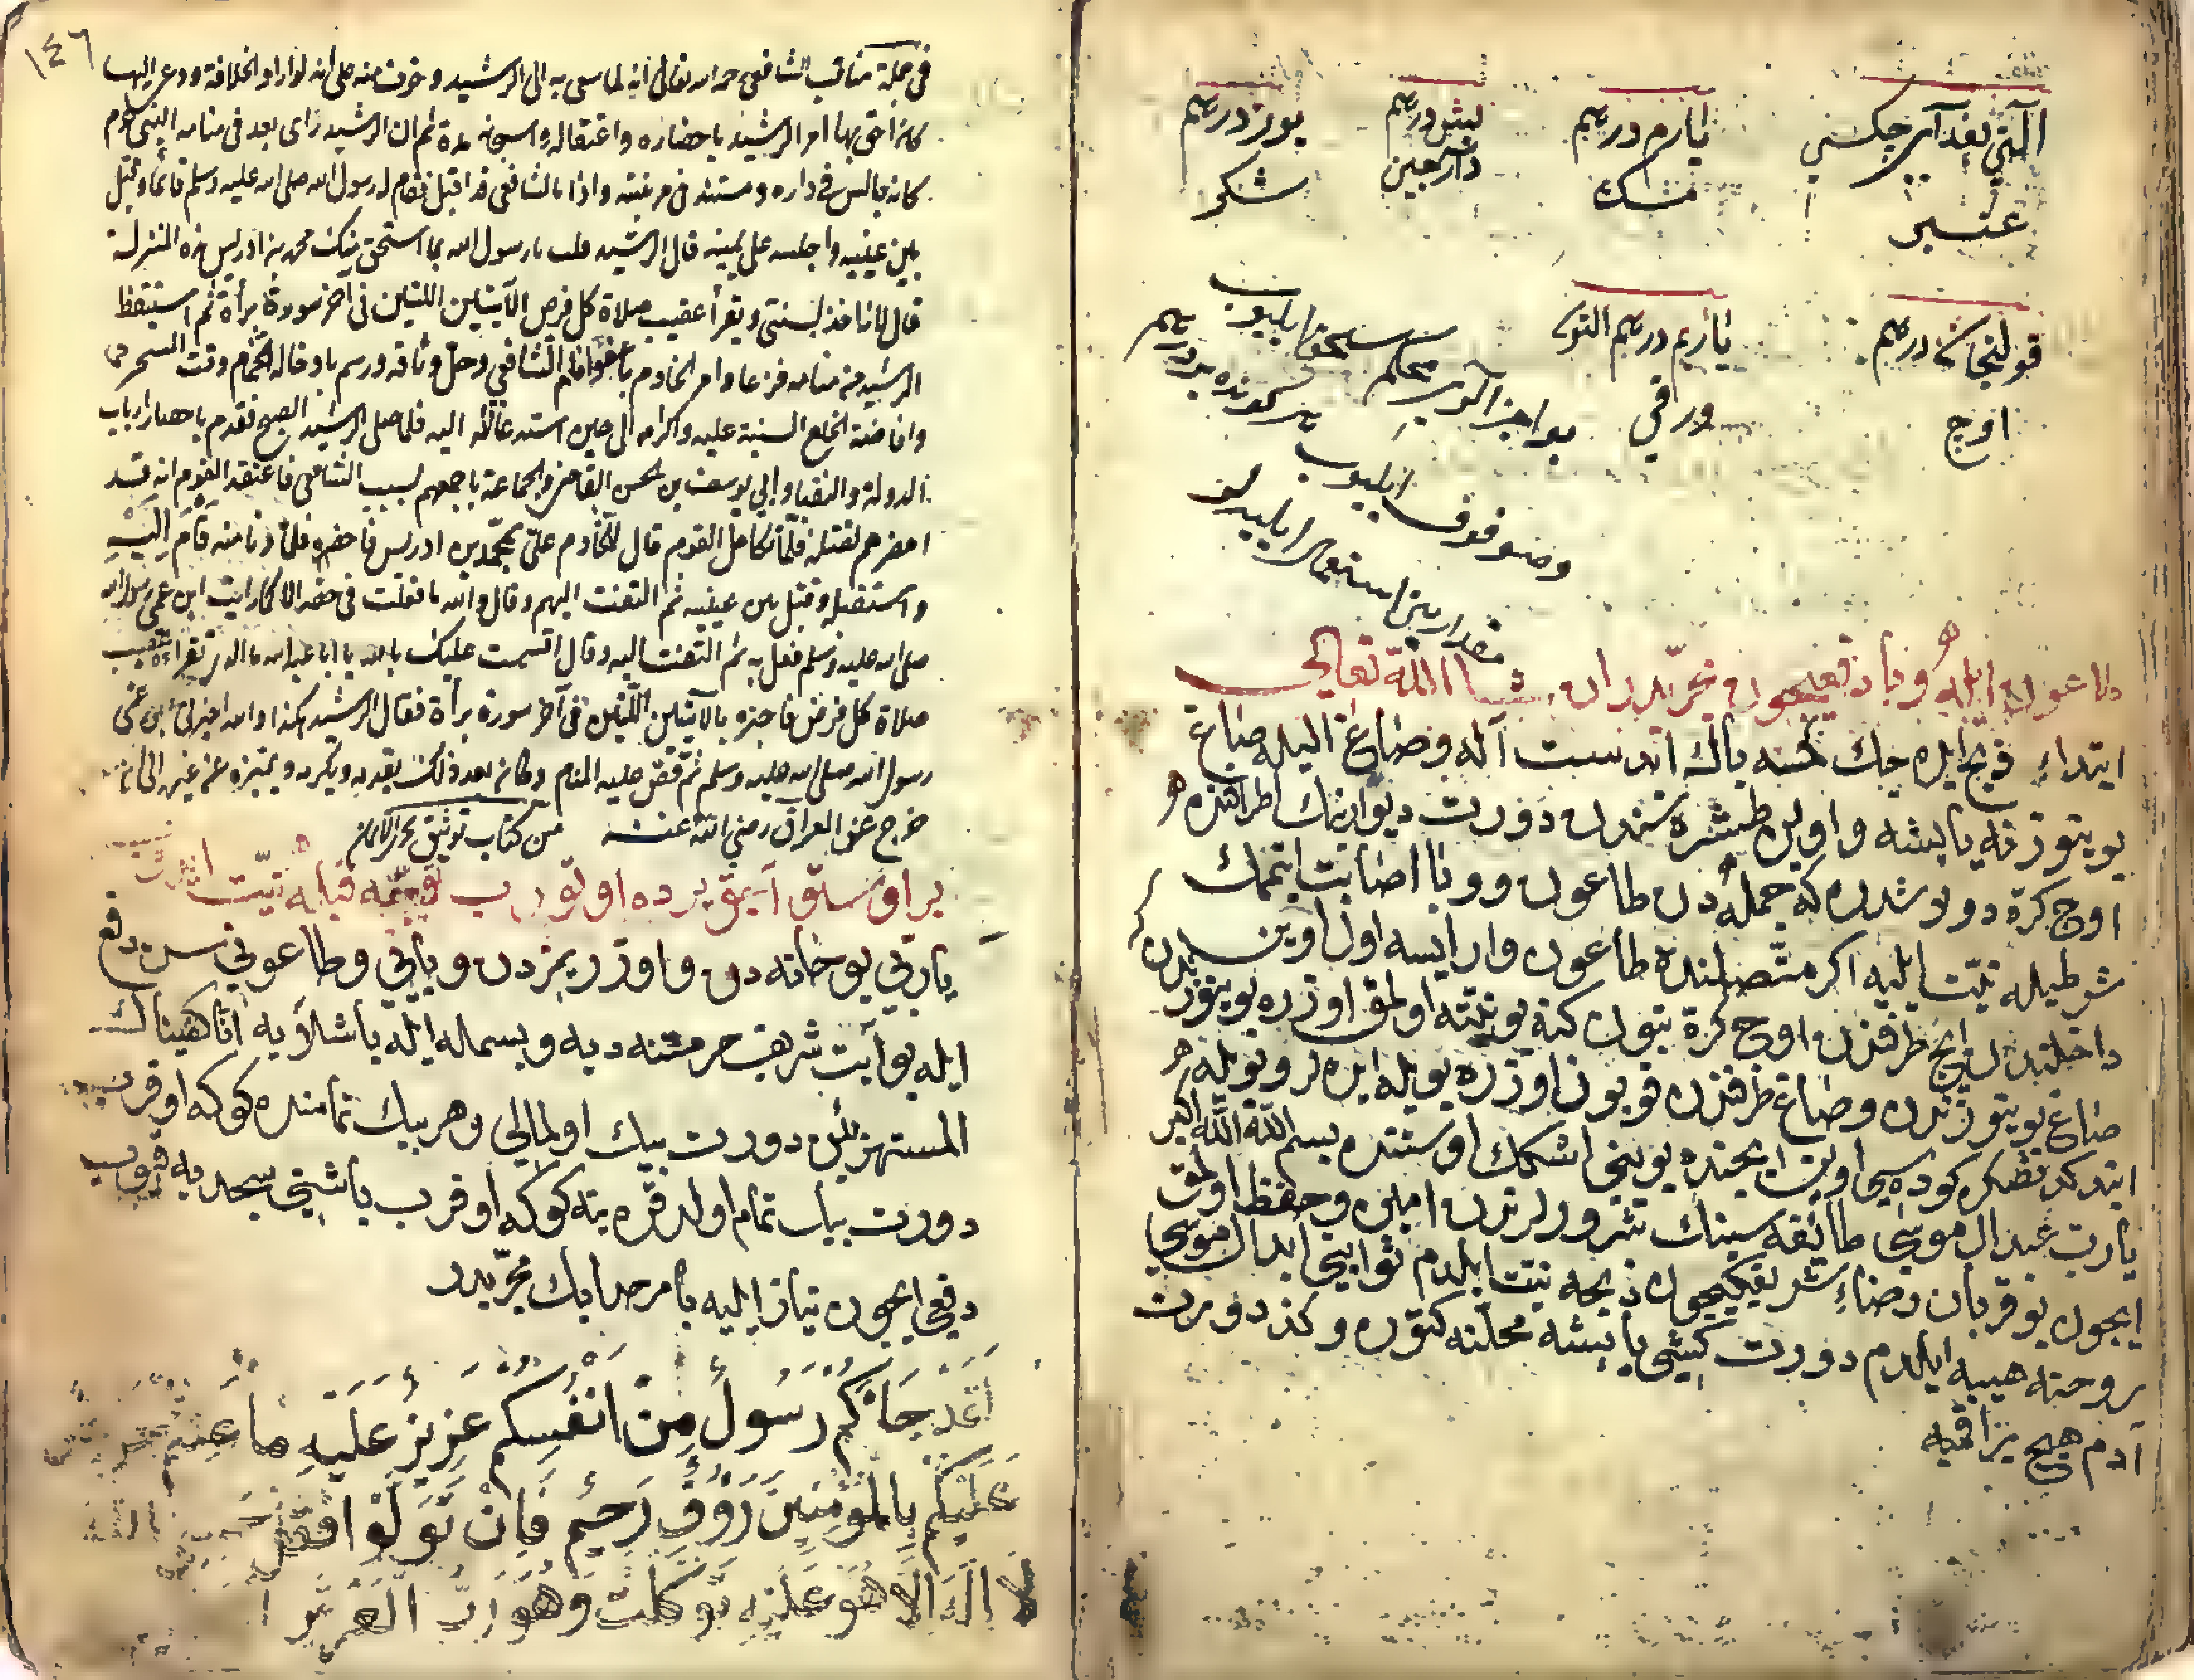 التي بغداي چكسي
عنبر
يارم درهم
مسك
بش درهم
دارجين
يوز درهم
شكر
قولنجان درهم
اوچ
ياريم درهم التون
ورقي
بو اجزالري محكم سحق ايليوب
وصفوف ايليوب
مقدارين استعمال ايليه لر
طاعون ايله وبا دفعيچون مجربدر ان شا الله تعالى
ابتداء قچ ايله
صاغ
بو يتوزنه ياپشه واوين طشره سندن دورت ديوارينك اطرافنده
اوچ كره دولاشدره كه جمله دن طاعون ووبا اصابت ايتمك
شرطيله نيت ايليه اكر متصلنده طاعون وار ايسه اول اوين
داخلندن اوچ كره
صاغ بوينوزندن وصاغ طرفندن قويون اوزره بويله ايده لر
اوين ايچنده بو يني اشكك اوستنده بسم الله الله اكبر
يارب عبدال موسى طائفه سينك شرورلرندن امين وحفظ اولمق
ايچون بو قربان رضاء شريفكيچون ذبحه نيت ايلدم ثوابني ابدال موسى
روحنه هبه ايلدم دورت كيشي ياپشه محلنه كتوره وكند دورت
آدم هيچ براقميه
١٤٦
في جملة مناقب الشافعي رحمه الله تعالى انه لما سعى به الى الرشيد وخوف منه على انه لو اراد الخلافة ودعى اليها
كان احق بها امر الرشيد باحضاره واعتقاله واسجنه مدة ثم ان الرشيد راى بعد في منامه النبي
كانه جالس في داره ومستند في مرتبته واذا بالشافعي قد اقبل فقام له رسول الله صلى الله عليه وسلم قائما وقبل
بين عينيه واجلسه على يمينه قال الرشيد قلت يا رسول الله بما استحق منك محمد بن ادريس هذه المنزلة
قال لانا خذ بسنتي ويقرأ عقيب صلاة كل فرض الآيتين اللتين في آخر سورة برأة ثم استيقظ
الرشيد من منامه فزعا وامر الخادم وحل وثاقه ورسم بادخاله الحمام وقت السحر
وافاضة الخلع السنية عليه واكرامه الى حين استدعائه اليه فلما صلى الرشيد الصبح فقدم باحضار ارباب
الدولة والنقبا وابي يوسف بن الحسن القاضي والجماعة باجمعهم بسبب الشافعي فاعتقد القوم انه قد
احضرهم لقتله فلما تكامل القوم قال للخادم علي بمحمد بن ادريس فاحضره فلما دنا منه قام اليه
واستقبله وقبل بين عينيه ثم التفت اليهم وقال والله ما فعلت في حقه الا كما رايت ابن عمي رسول الله
صلى الله عليه وسلم فعل به ثم التفت اليه وقال اقسمت عليك بالله يا ابا عبد الله ما الذي تقراءه عقيب
صلاة كل فرض فاخبره بالآيتين اللتين في آخر سورة برأة فقال الرشيد هكذا والله اخبرني ابن عمي
رسول الله صلى الله عليه وسلم ثم قص عليه المنام وكان بعد ذلك يقدمه ويكرمه ويميزه عن غيره الى ان
خرج عن العراق رضي الله عنه من كتاب توثيق
بر اوستق آييق يرده اوتورب توجهه قبله نيت
ياربي بو خانه دن واوزريمزدن وبايي وطاعوني سن دفع
ايله بو آيت شريف حرمتنه ديه وبسمله ايله باشلايه انا كفيناك
المستهزئين دورت بيك اولمالي وهر بيك تمامنده كوكه اوقرب
دورت بيك تمام اولدقده ينه كوكه اوقرب باشيني سجديه قيوب
دفعي ايچون نياز ايليه بامر خدايك مجربدر
لَقَدْ جَاءَكُمْ رَسُولٌ مِنْ اَنْفُسِكُمْ عَزِيزٌ عَلَيْهِ مَا عَنِتُّمْ
عَلَيْكُمْ بِالْمُؤْمِنِينَ رَؤُفٌ رَحِيمٌ فَاِنْ تَوَلَّوْا فَقُلْ
لَا اِلَهَ اِلَّا هُوَ عَلَيْهِ تَوَكَّلْتُ وَهُوَ رَبُّ الْعَرْشِ